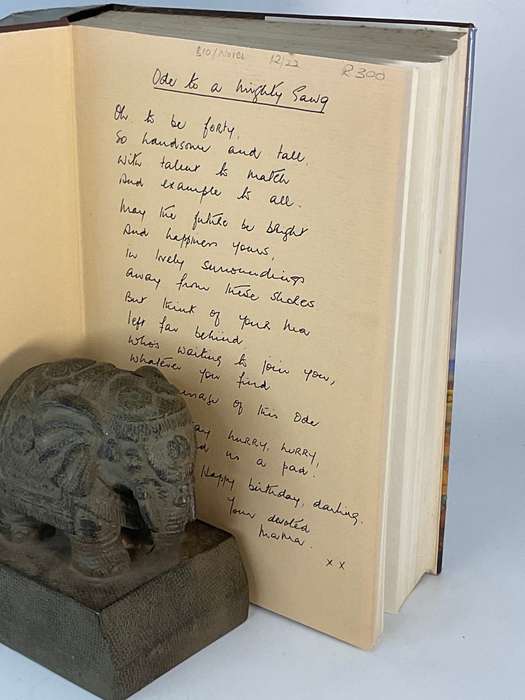 BIO/Novel 12/22 R300
Ode to a mighty
Oh to be forty,
So handsome and tall,
With talent to match
And example to all.
May the future be bright
And happiness yours,
In lovely surroundings
away from these shores
But think of your Ma
left far behind,
Who's waiting to join you,
whatever you find
of this Ode
hurry, hurry,
us a pad.
Happy birthday, darling.
Your devoted
Mama.
x x